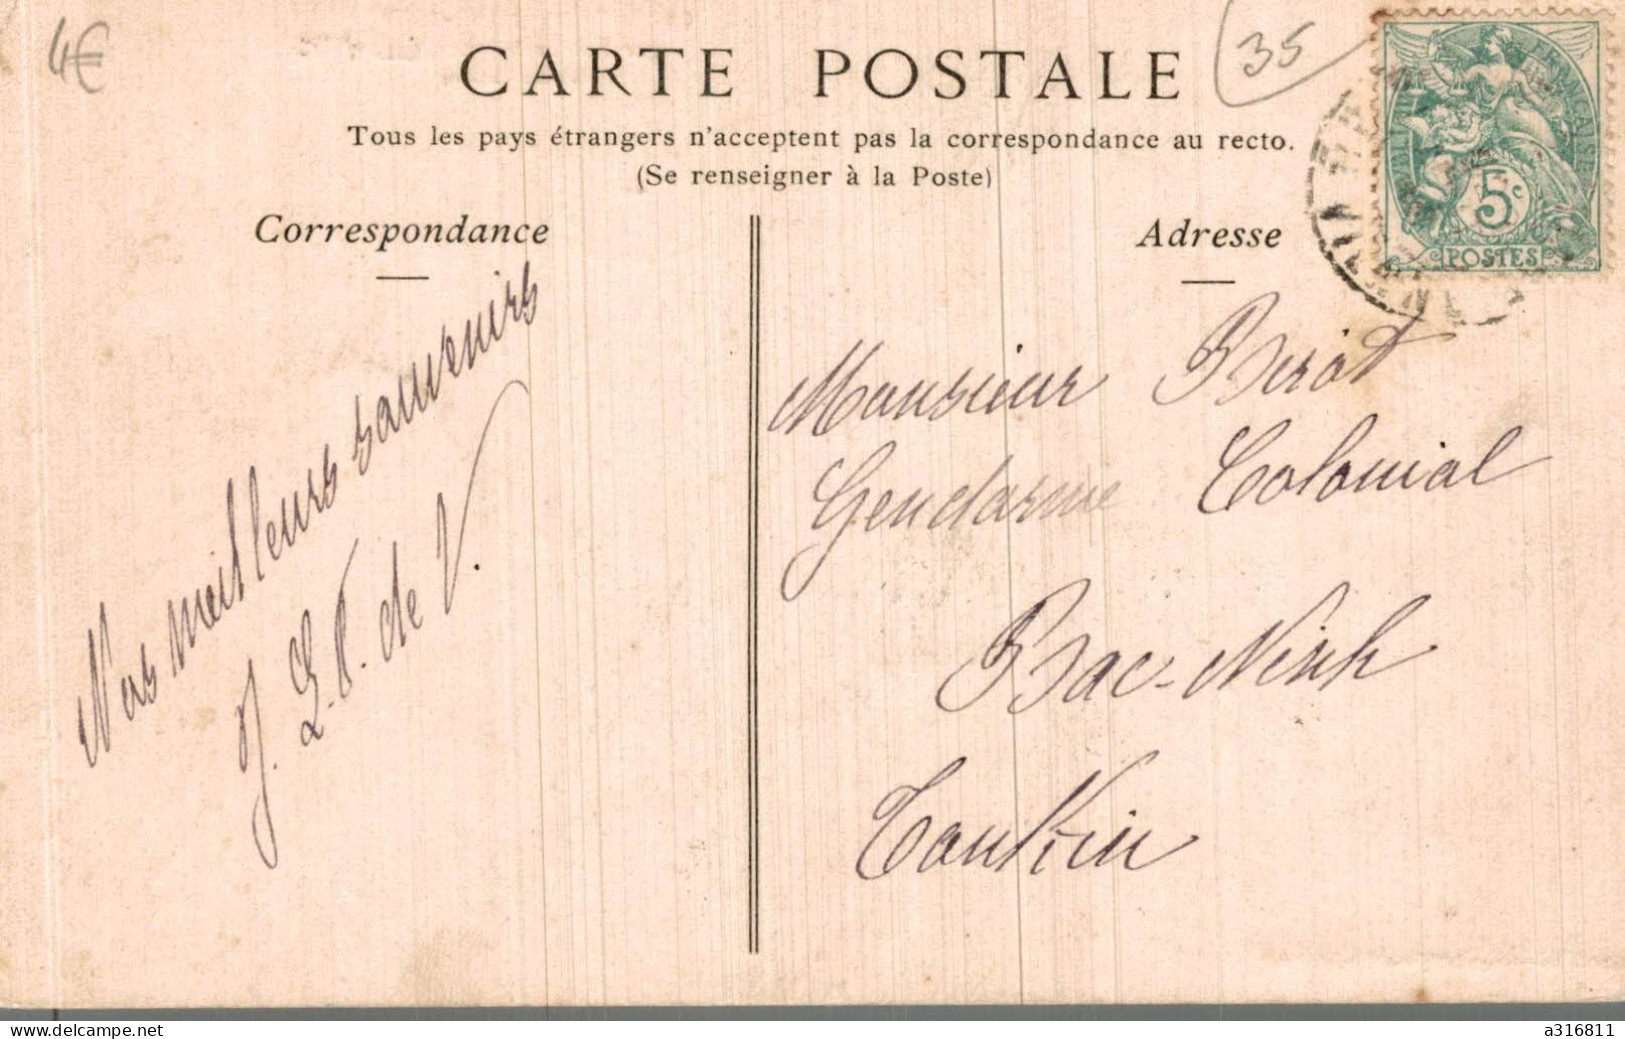 4€
CARTE POSTALE
35
Tous les pays étrangers n'acceptent pas la correspondance au recto.
(Se renseigner à la Poste)
Correspondance
Nos meilleurs souvenirs
J. L. P. de V.
Adresse
5c
POSTES
Monsieur Berot
Gendarme Colonial
Bac-Ninh
Tonkin
Visit delcampe.net
a316811